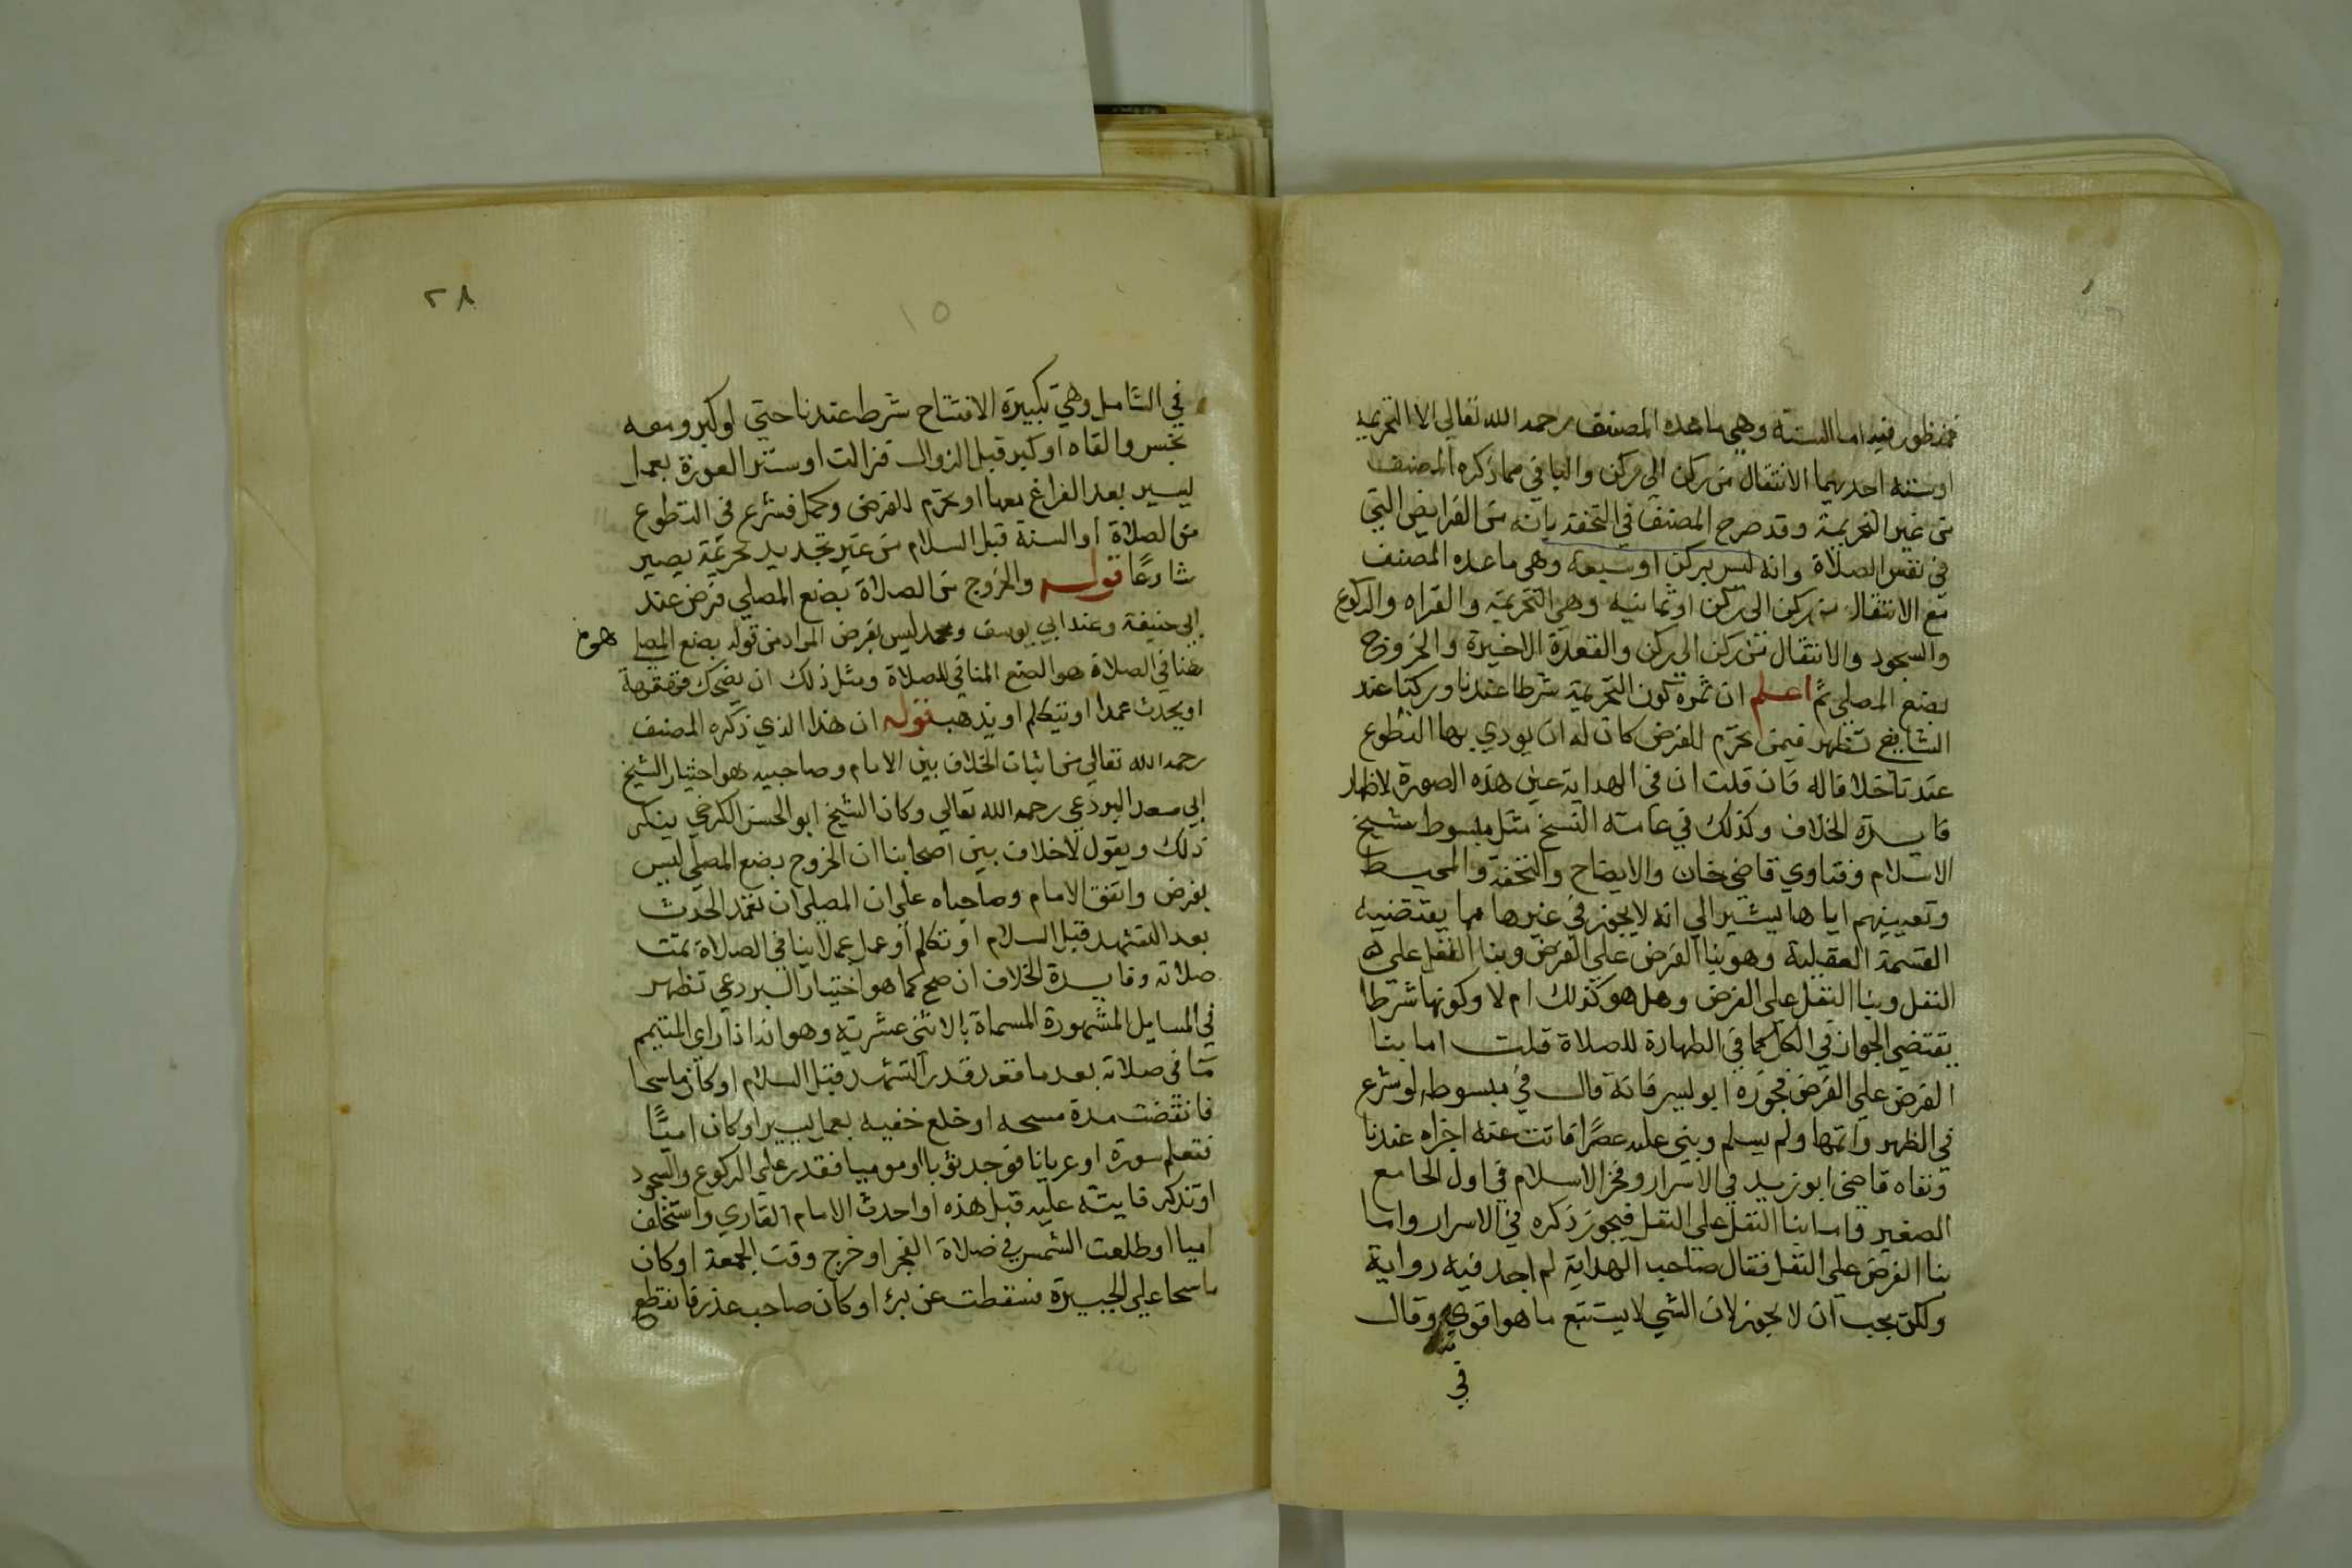 فمنظور فيه اما الستة وهي ما عده المصنف رحمه الله تعالى الا التحريمة
او ستة احديهما الانتقال من ركن الى ركن والباقي مما ذكره المصنف
من غير التحريمة وقد صرح المصنف في التحفة بانه من الفرايض التي
في نفس الصلاة وانه ليس بركن او سبعة وهي ما عده المصنف
مع الانتقال من ركن الى ركن او ثمانية وهي التحريمة والقراه والركوع
والسجود والانتقال من ركن الى ركن والقعدة الاخيرة والخروج
بصنع المصلي ثم اعلم ان ثمرة كون التحريمة شرطا عندنا وركنا عند
الشافعي تظهر فيمن تحرم للفرض كان له ان يودي بها التطوع
عندنا خلافا له فان قلت ان في الهداية عين هذه الصورة لاظهار
فايدة الخلاف وكذلك في عامة النسخ مثل مبسوط شيخ
الاسلام وفتاوي قاضي خان والايضاح والتحفة والمحيط
وتعيينهم اياها يشير الي انه لا يجوز في غيرها مما يقتضيه
القسمة العقلية وهو بنا الفرض علي الفرض وبنا النفل علي
النفل وبنا النفل علي الفرض وهل هو كذلك ام لا وكونها شرطا
يقتضي الجواز في الكل كما في الطهارة للصلاة قلت اما بنا
الفرض علي الفرض فجوزه ابو اليسر فانه قال في مبسوطه لو شرع
في الظهر واتمها ولم يسلم وبني عليه عصرا فاتت عنه اجزاه عندنا
ونفاه قاضي ابو زيد في الاسرار وفخر الاسلام في اول الجامع
الصغير واما بنا النفل علي النفل فيجوز ذكره في الاسرار واما
بنا الفرض علي النفل فقال صاحب الهداية لم اجد فيه رواية
ولكن يجب ان لا يجوز لان الشي لا يستتبع ما هو اقوي منه وقال
في
٢٨
١٥
في الشامل وهي تكبيرة الافتتاح شرط عندنا حتي لو كبر ومعه
نجس والقاه او كبر قبل الزوال فزالت او ستر العورة بعمل
يسير بعد الفراغ معها او تحرم للفرض وكمل فشرع في التطوع
من الصلاة او السنة قبل السلام من غير تجديد تحريمة يصير
شارعا قوله والخروج من الصلاة بصنع المصلي فرض عند
ابي حنيفة وعند ابي يوسف ومحمد ليس بفرض المراد من قوله بصنع المصلي
هنا في الصلاة هو الصنع المنافي للصلاة ومثل ذلك ان يضحك قهقهة
او يحدث عمدا او يتكلم او يذهب قوله ان هذا الذي ذكره المصنف
رحمه الله تعالي من اثبات الخلاف بين الامام وصاحبيه هو اختيار الشيخ
ابي سعد البردعي رحمه الله تعالي وكان الشيخ ابو الحسن الكرخي ينكر
ذلك ويقول لا خلاف بين اصحابنا ان الخروج بصنع المصلي ليس
بفرض واتفق الامام وصاحباه علي ان المصلي ان تعمد الحدث
بعد التشهد قبل السلام او تكلم او عمل عملا ينافي الصلاة تمت
صلاته وفايدة الخلاف ان صح كما هو اختيار البردعي تظهر
في المسايل المشهورة المسماة بالاثني عشرية وهو انه اذا راي المتيمم
مآ في صلاته بعد ما قعد قدر التشهد قبل السلام او كان ماسحا
فانقضت مدة مسحه او خلع خفيه بعمل يسير او كان اميًا
فتعلم سورة او عريانا فوجد ثوبا او موميا فقدر علي الركوع والسجود
او تذكر فايتة عليه قبل هذه او احدث الامام القاري واستخلف
اميا او طلعت الشمس في صلاة الفجر او خرج وقت الجمعة او كان
ماسحا علي الجبيرة فسقطت عن برء او كان صاحب عذر فانقطع